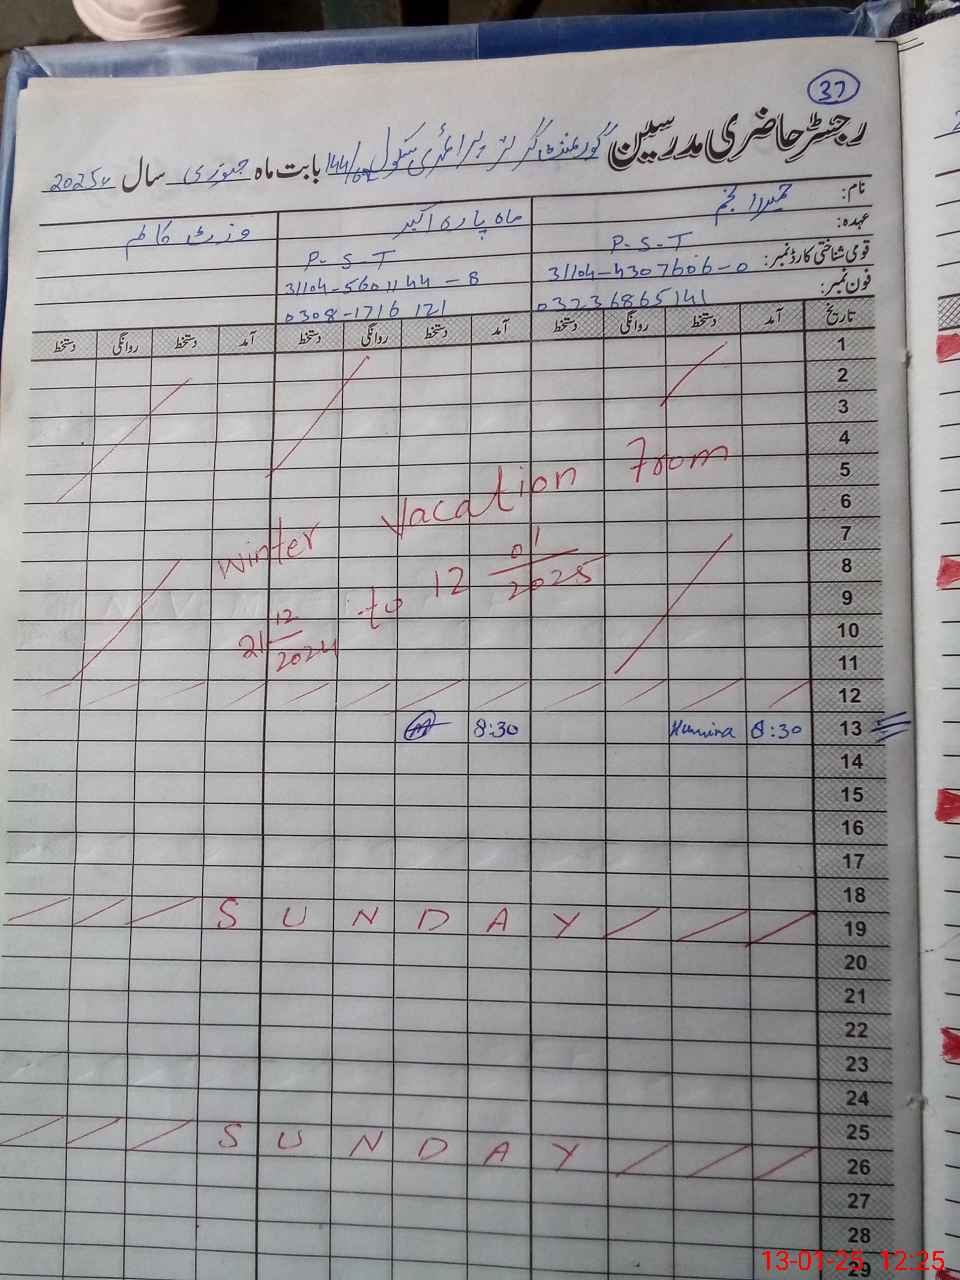 37
رجسٹر حاضری مدرسین گورنمنٹ گرلز پرائمری سکول 144/ بابت ماہ جنوری سال 2025ء
نام: حمیرا نجم ماہ پارہ اکبر وزٹ کالم
عہدہ: P-S-T P-S-T
قومی شناختی کارڈ نمبر: 31104-4307606-0 31104-5601144-8
فون نمبر: 03236865141 0308-1716121
تاریخ آمد دستخط روانگی دستخط آمد دستخط روانگی دستخط آمد دستخط روانگی دستخط
1
2
3
4
5
6
7
8
9
10
11
12
Winter Vacation From
21 12/2024 to 12 01/2025
13 8:30 Humira 8:30
14
15
16
17
18
19 SUNDAY
20
21
22
23
24
25
26 SUNDAY
27
28
29
13-01-25 12:25